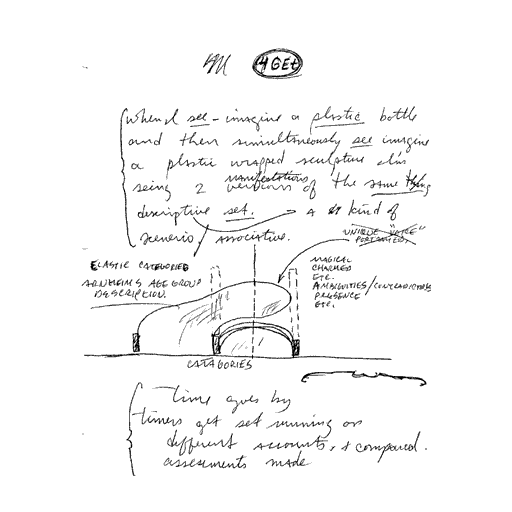 4GET
when I see - imagine a plastic bottle
and then simultaneously see imagine
a plastic wrapped sculpture
seing 2 manifestations versions of the same thing
descriptive set. → a kind of
scenerio, associative.
UNIQUE "VOICE"
ELASTIC CATEGORIES
ARNHEIM'S AGE GROUP
DESCRIPTION.
MAGICAL
CHARMED
ETC.
AMBIGUITIES/CONTRADICTIONS
PRESENCE
ETC.
CATAGORIES
time goes by
timers get set running on
different accounts, & compared.
assesments made